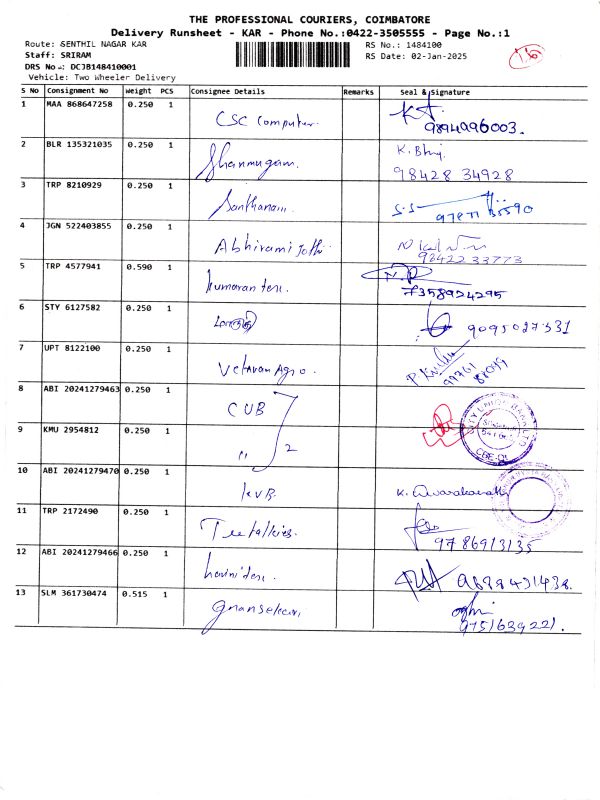 THE PROFESSIONAL COURIERS, COIMBATORE
Delivery Runsheet - KAR - Phone No.:0422-3505555 - Page No.:1
Route: SENTHIL NAGAR KAR RS No.: 1484100
Staff: SRIRAM RS Date: 02-Jan-2025
DRS No.: DCJB148410001
Vehicle: Two Wheeler Delivery
S No Consignment No Weight PCS Consignee Details Remarks Seal & Signature
1 MAA 868647258 0.250 1 CSC Computer. 9894996003.
2 BLR 135321035 0.250 1 Shanmugam. K. Bhuj. 98428 34928
3 TRP 8210929 0.250 1 Santhanam. S.S
4 JGN 522403855 0.250 1 Abhirami Jothi 98422 33773
5 TRP 4577941 0.590 1 kumaran tex. 7358924295
6 STY 6127582 0.250 1 9095027331
7 UPT 8122100 0.250 1 Vetrivan Agro.
8 ABI 20241279463 0.250 1 CUB
9 KMU 2954812 0.250 1 " 2
10 ABI 20241279470 0.250 1 KVB. K.
11 TRP 2172490 0.250 1 9786913135
12 ABI 20241279466 0.250 1 harini tex.
13 SLM 361730474 0.515 1 gnanasekar, 9751639221.